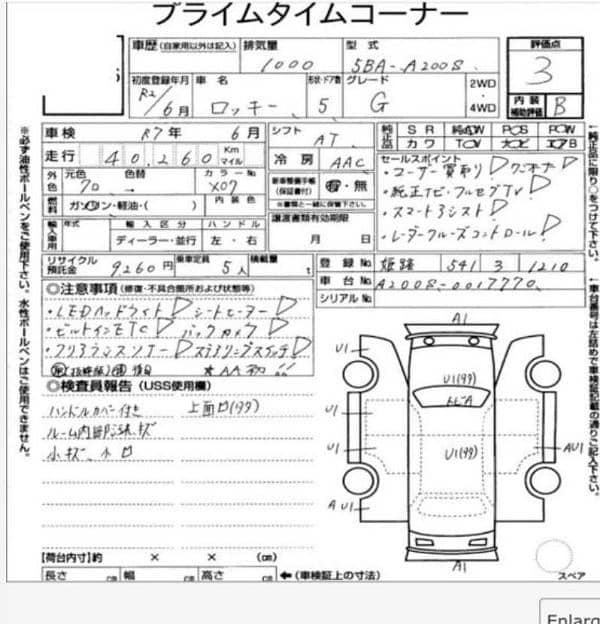 プライムタイムコーナー
車歴 (自家用以外は記入) 排気量 型式 評価点
1000 5BA-A200S 3
初度登録年月 車名 形状・ドア数 グレード 2WD
R2/6月 ロッキー 5 G 4WD
内装補助評価 B
車検 R7年 6月 シフト AT 純正品 SR 純AW PS PW
走行 40,260 Km マイル 冷房 AAC カワ TV ナビ エアB
外色 元色 色替 カラーNo. 新車整備手帳(保証書付) 有・無 セールスポイント
クロ → X07 ※書類と一緒に保管下さい。 ・ユーザー買取り! ワンオーナー!
燃料 ガソリン・軽油・( ) 内装色 譲渡書類有効期限 ・純正ナビ・フルセグTV!
輸入車用 年式 輸入区分 ハンドル ・スマートアシスト!
ディーラー・並行 左・右 月 日 ・レーダークルーズコントロール!
リサイクル預託金 9260円 乗車定員 5人 積載量 t 登録No. 姫路 541 3 1210
車台No. A200S-0017770
シリアルNo.
◎注意事項 (修復・不具合箇所および状態等)
・LEDヘッドライト! シートヒーター!
・ビルトインETC! バックカメラ!
・クリアランスソナー! ステアリングスイッチ!
◎検査員報告 (USS使用欄)
ハンドルカバー付き 上面
ルーム内部汚れキズ
小キズ、小
A1
U1
U1
U1
A U1
U1(99)
トビA
U1(99)
AU1
A1
【荷台内寸】約 × × (cm)
長さ cm 幅 cm 高さ cm ←(車検証上の寸法) スペア
※必ず油性ボールペンをご使用下さい。水性ボールペンはご使用できません。
←純正品に限り○をつけて下さい。
←車台番号は左詰めで車検証記載の通りご記入下さい。
Enlarg